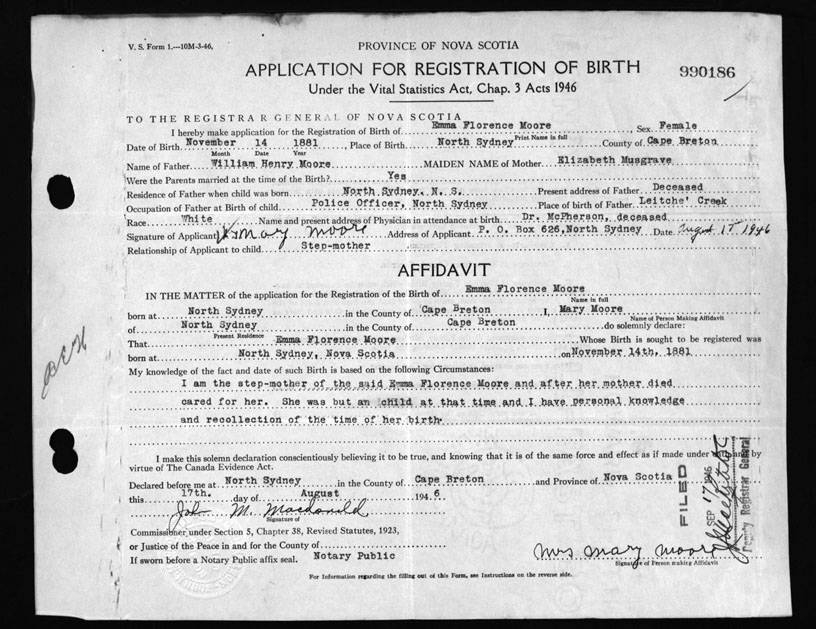 V. S. Form 1.—10M-3-46.
PROVINCE OF NOVA SCOTIA
APPLICATION FOR REGISTRATION OF BIRTH
990186
Under the Vital Statistics Act, Chap. 3 Acts 1946
TO THE REGISTRAR GENERAL OF NOVA SCOTIA
I hereby make application for the Registration of Birth of Emma Florence Moore, Sex Female
Print Name in full
Date of Birth November 14 1881, Place of Birth North Sydney County of Cape Breton
Month Date Year
Name of Father William Henry Moore MAIDEN NAME of Mother Elizabeth Musgrave
Were the Parents married at the time of the Birth? Yes
Residence of Father when child was born North Sydney, N. S. Present address of Father Deceased
Occupation of Father at Birth of Child Police Officer, North Sydney Place of birth of Father Leitche' Creek
Race White Name and present address of Physician in attendance at birth Dr. McPherson, deceased
Signature of Applicant X Mary Moore Address of Applicant P. O. Box 626, North Sydney Date August 17 1946
Relationship of Applicant to child Step-mother
AFFIDAVIT
IN THE MATTER of the application for the Registration of the Birth of Emma Florence Moore
Name in full
born at North Sydney in the County of Cape Breton I, Mary Moore
Name of Person Making Affidavit
of North Sydney in the County of Cape Breton do solemnly declare:
Present Residence
That Emma Florence Moore Whose Birth is sought to be registered was
born at North Sydney, Nova Scotia on November 14th, 1881
My knowledge of the fact and date of such Birth is based on the following Circumstances:
I am the step-mother of the said Emma Florence Moore and after her mother died
cared for her. She was but an child at that time and I have personal knowledge
and recollection of the time of her birth.
I make this solemn declaration conscientiously believing it to be true, and knowing that it is of the same force and effect as if made under oath and by
virtue of The Canada Evidence Act.
Declared before me at North Sydney in the County of Cape Breton and Province of Nova Scotia
this 17th. day of August 1946
John M. Macdonald
Signature of
Commissioner under Section 5, Chapter 38, Revised Statutes, 1923,
or Justice of the Peace in and for the County of
If sworn before a Notary Public affix seal. Notary Public
Mrs Mary Moore
Signature of Person making Affidavit
For Information regarding the filling out of this Form, see Instructions on the reverse side.
FILED
SEP 17 1946
Deputy Registrar General